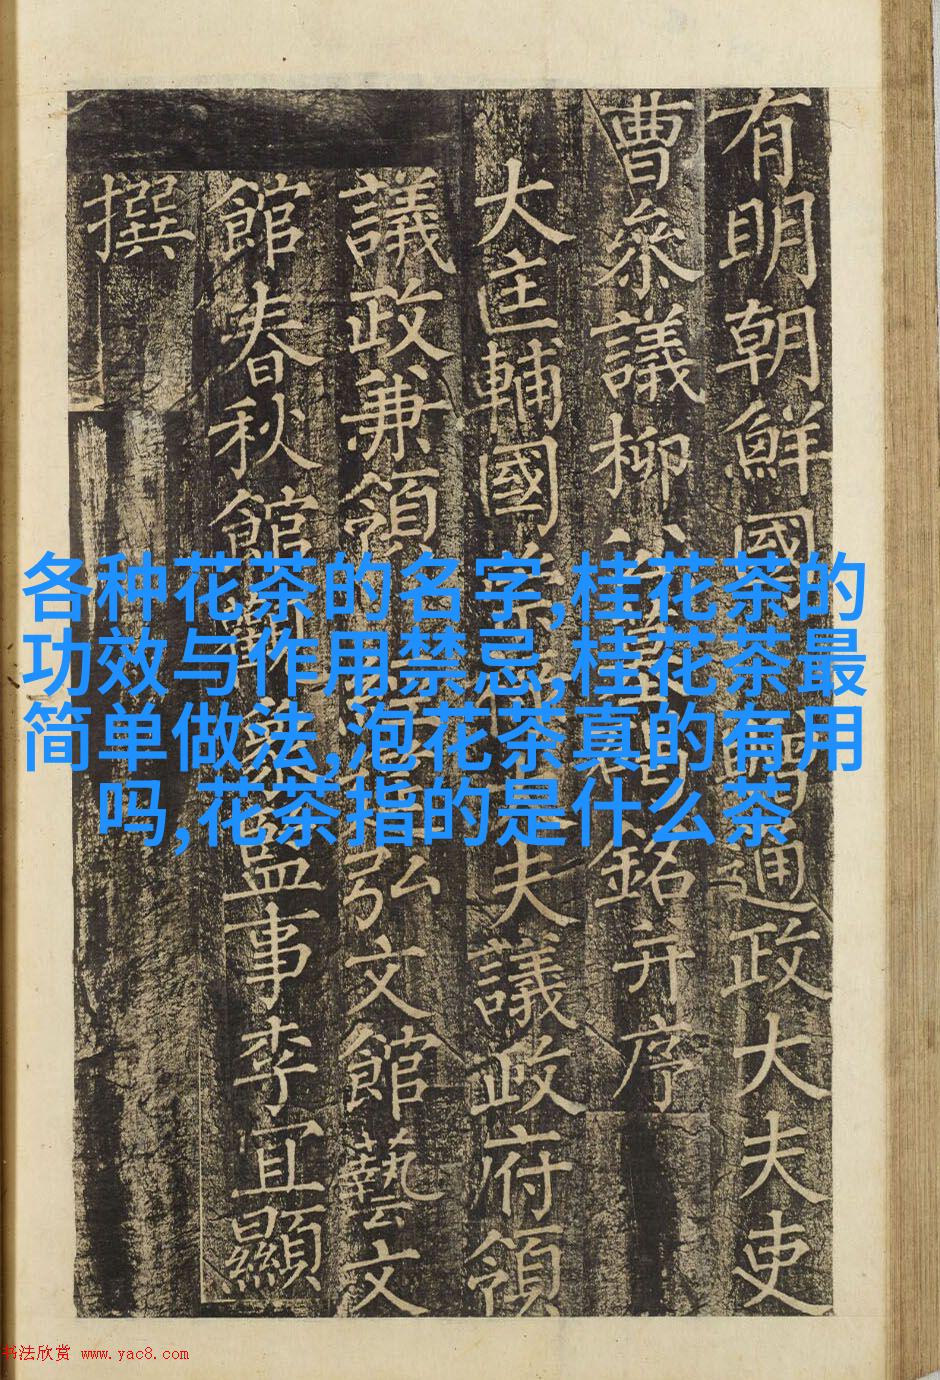 有明朝鮮國通政大夫吏
曹叅議柳公墓碣銘并序
大匡輔國崇祿大夫議政府領
議政兼領經筵弘文館藝文
館春秋館觀象監事李宜顯
撰
各种花茶的名字,桂花茶的
功效与作用禁忌,桂花茶最
简单做法,泡花茶真的有用
吗,花茶指的是什么茶
书法欣赏 www.yac8.com